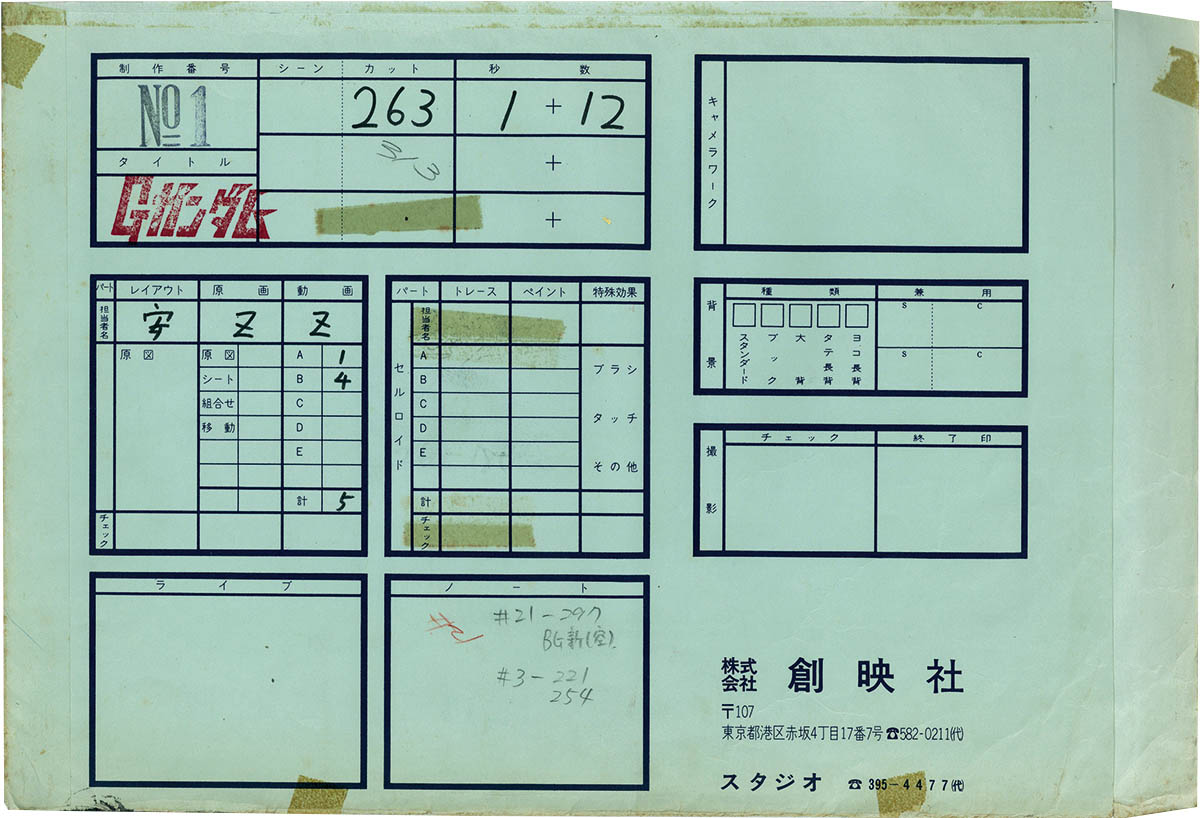 制作番号 シーン カット 秒数
No 1 263 1 + 12
タイトル +
Gガンダム +
キャメラワーク
パート レイアウト 原画 動画
担当者名 安 Z Z
原図 原図 A 1
シート B 4
組合せ C
移動 D
E
計 5
チェック
パート トレース ペイント 特殊効果
担当者名
セルロイド
A
B ブラシ
C
D タッチ
E
その他
計
チェック
背景 種類 兼用
スタンダード ブック 大背 タテ長背 ヨコ長背
S C
S C
撮影 チェック 終了印
ライブ
ノート
#21-297
BG新(空).
#3-221
254
株式会社 創映社
〒107
東京都港区赤坂4丁目17番7号☎582-0211(代)
スタジオ ☎395-4477(代)